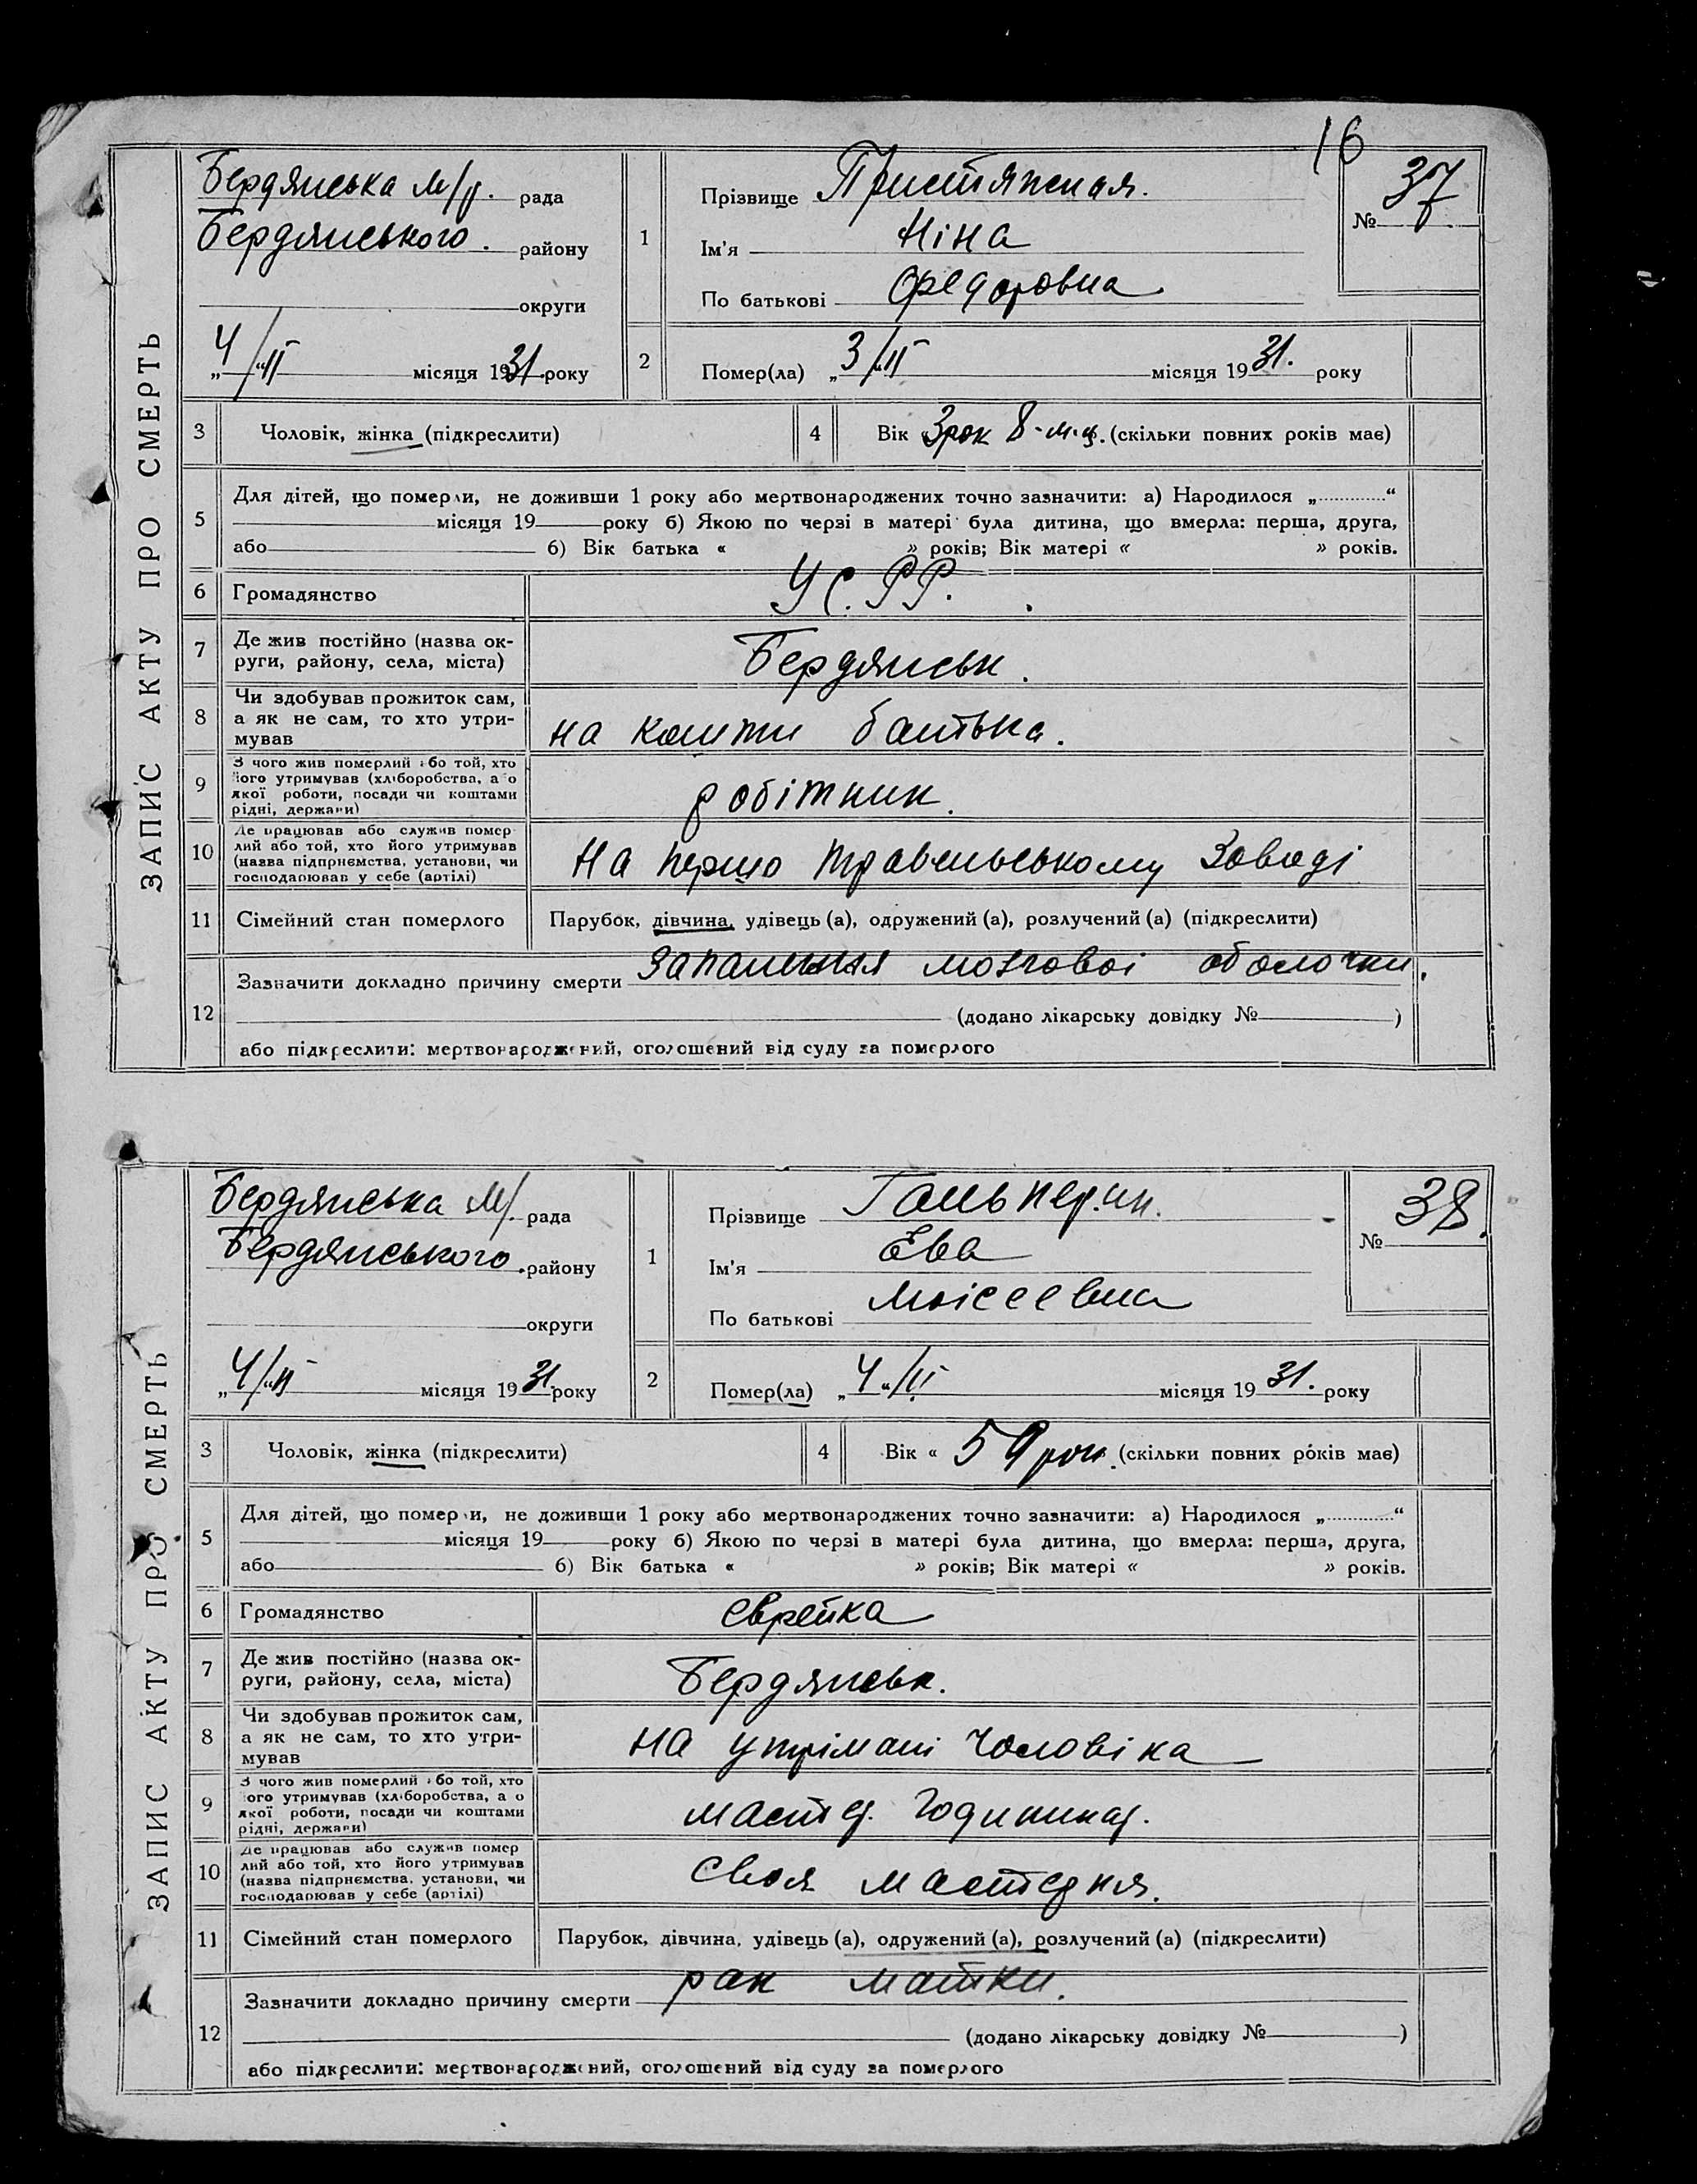 16
ЗАПИС АКТУ ПРО СМЕРТЬ
Бердянська м/р. рада
Бердянського. району
округи
„4/“II місяця 1931 року
1
Прізвище Пристяжная.
Ім'я Ніна
По батькові Федоровна
№ 37
2
Помер(ла) „3/“II місяця 1931. року
3 Чоловік, жінка (підкреслити)
4 Вік „3 рок 8-м-ц. (скільки повних років має)
5 Для дітей, що померли, не доживши 1 року або мертвонароджених точно зазначити: а) Народилося „ “
місяця 19 року б) Якою по черзі в матері була дитина, що вмерла: перша, друга,
або б) Вік батька « » років; Вік матері « » років.
6 Громадянство УС.РР.
7 Де жив постійно (назва ок-
руги, району, села, міста) Бердянськ.
8 Чи здобував прожиток сам,
а як не сам, то хто утри-
мував на кошти батька.
9 З чого жив померлий або той, хто
його утримував (хліборобства, а о
якої роботи, посади чи коштами
рідні, держави) робітник.
10 Де працював або служив помер
лий або той, хто його утримував
(назва підприємства, установи, чи
господарював у себе (артілі) На Першо Травенському Заводі
11 Сімейний стан померлого Парубок, дівчина, удівець (а), одружений (а), розлучений (а) (підкреслити)
12 Зазначити докладно причину смерти Запалення мозговоі оболочки.
(додано лікарську довідку № )
або підкреслити: мертвонароджений, оголошений від суду за померлого
ЗАПИС АКТУ ПРО СМЕРТЬ
Бердянська М/. рада
Бердянського. району
округи
„4/“II місяця 1931 року
1
Прізвище Гальперин.
Ім'я Ева
По батькові Моісеевна
№ 38.
2
Помер(ла) „4“/II місяця 1931. року
3 Чоловік, жінка (підкреслити)
4 Вік « 59 рок. (скільки повних років має)
5 Для дітей, що померли, не доживши 1 року або мертвонароджених точно зазначити: а) Народилося „ “
місяця 19 року б) Якою по черзі в матері була дитина, що вмерла: перша, друга,
або б) Вік батька « » років; Вік матері « » років.
6 Громадянство еврейка
7 Де жив постійно (назва ок-
руги, району, села, міста) Бердянськ.
8 Чи здобував прожиток сам,
а як не сам, то хто утри-
мував на утрімані чоловіка
9 З чого жив померлий або той, хто
його утримував (хліборобства, а о
якої роботи, посади чи коштами
рідні, держави) мастер.
10 Де працював або служив помер
лий або той, хто його утримував
(назва підприємства, установи, чи
господарював у себе (артілі) своя мастерня.
11 Сімейний стан померлого Парубок, дівчина, удівець (а), одружений (а), розлучений (а) (підкреслити)
12 Зазначити докладно причину смерти рак матки.
(додано лікарську довідку № )
або підкреслити: мертвонароджений, оголошений від суду за померлого